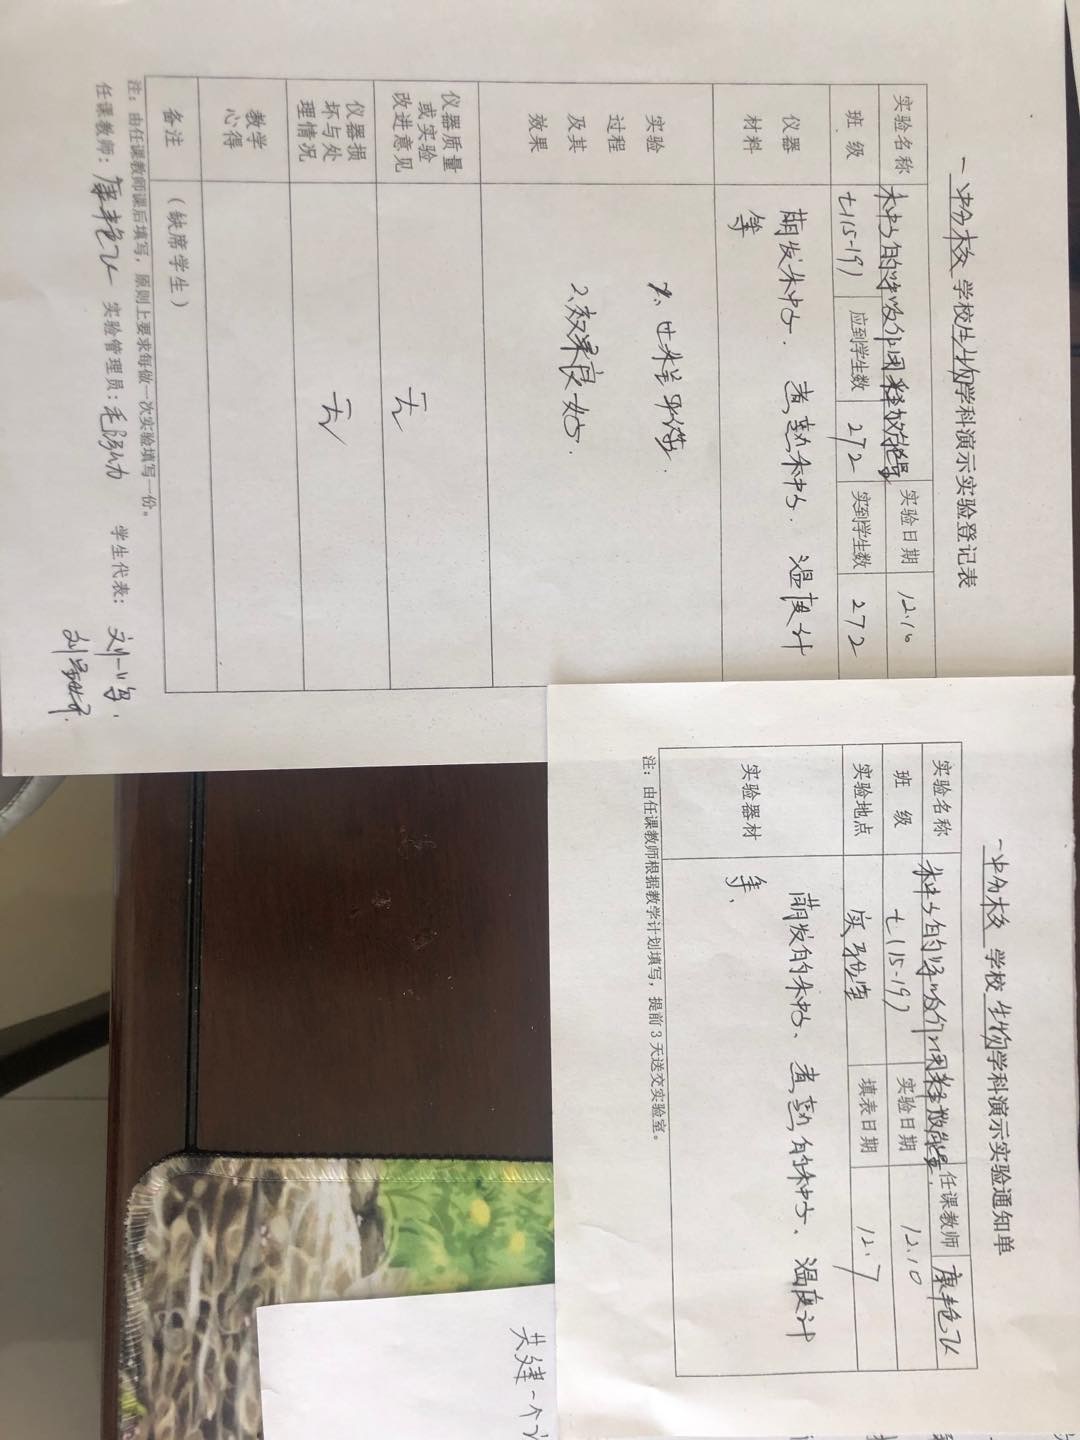 一中分校 学校生物学科演示实验登记表
实验名称 种子的呼吸作用释放能量 实验日期 12.10
班 级 七(15-19) 应到学生数 272 实到学生数 272
仪器
材料
萌发种子、煮熟种子、温度计
等
实验
过程
及其
效果
1、过程
2、效果良好.
仪器质量
或实验
改进意见
无
仪器损
坏与处
理情况
无
教学
心得
备注 (缺席学生)
注:由任课教师课后填写,原则上要求每做一次实验填写一份。
任课教师:康艳飞 实验管理员:毛 学生代表:刘一鸣.
刘
一中分校 学校 生物学科演示实验通知单
实验名称 种子的呼吸作用释放能量. 任课教师 康艳飞
班 级 七(15-19) 实验日期 12.10
实验地点 实验室 填表日期 12.7
实验器材
萌发的种子、煮熟的种子、温度计
等、
注:由任课教师根据教学计划填写,提前3天送交实验室。
共建一个